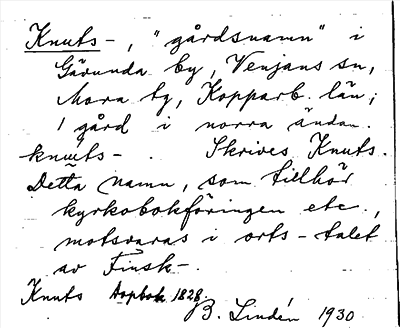 Knuts-, "gårdsnamn" i
Gävunda by, Venjans sn,
Mora tg, Kopparb. län;
1 gård i norra ändan.
knu̅ts- . Skrives Knuts.
Detta namn, som tillhör
kyrkobokföringen etc.,
motsvaras i orts-talet
av Finsk-.
Knuts Dopbok 1828.
B. Lindén 1930